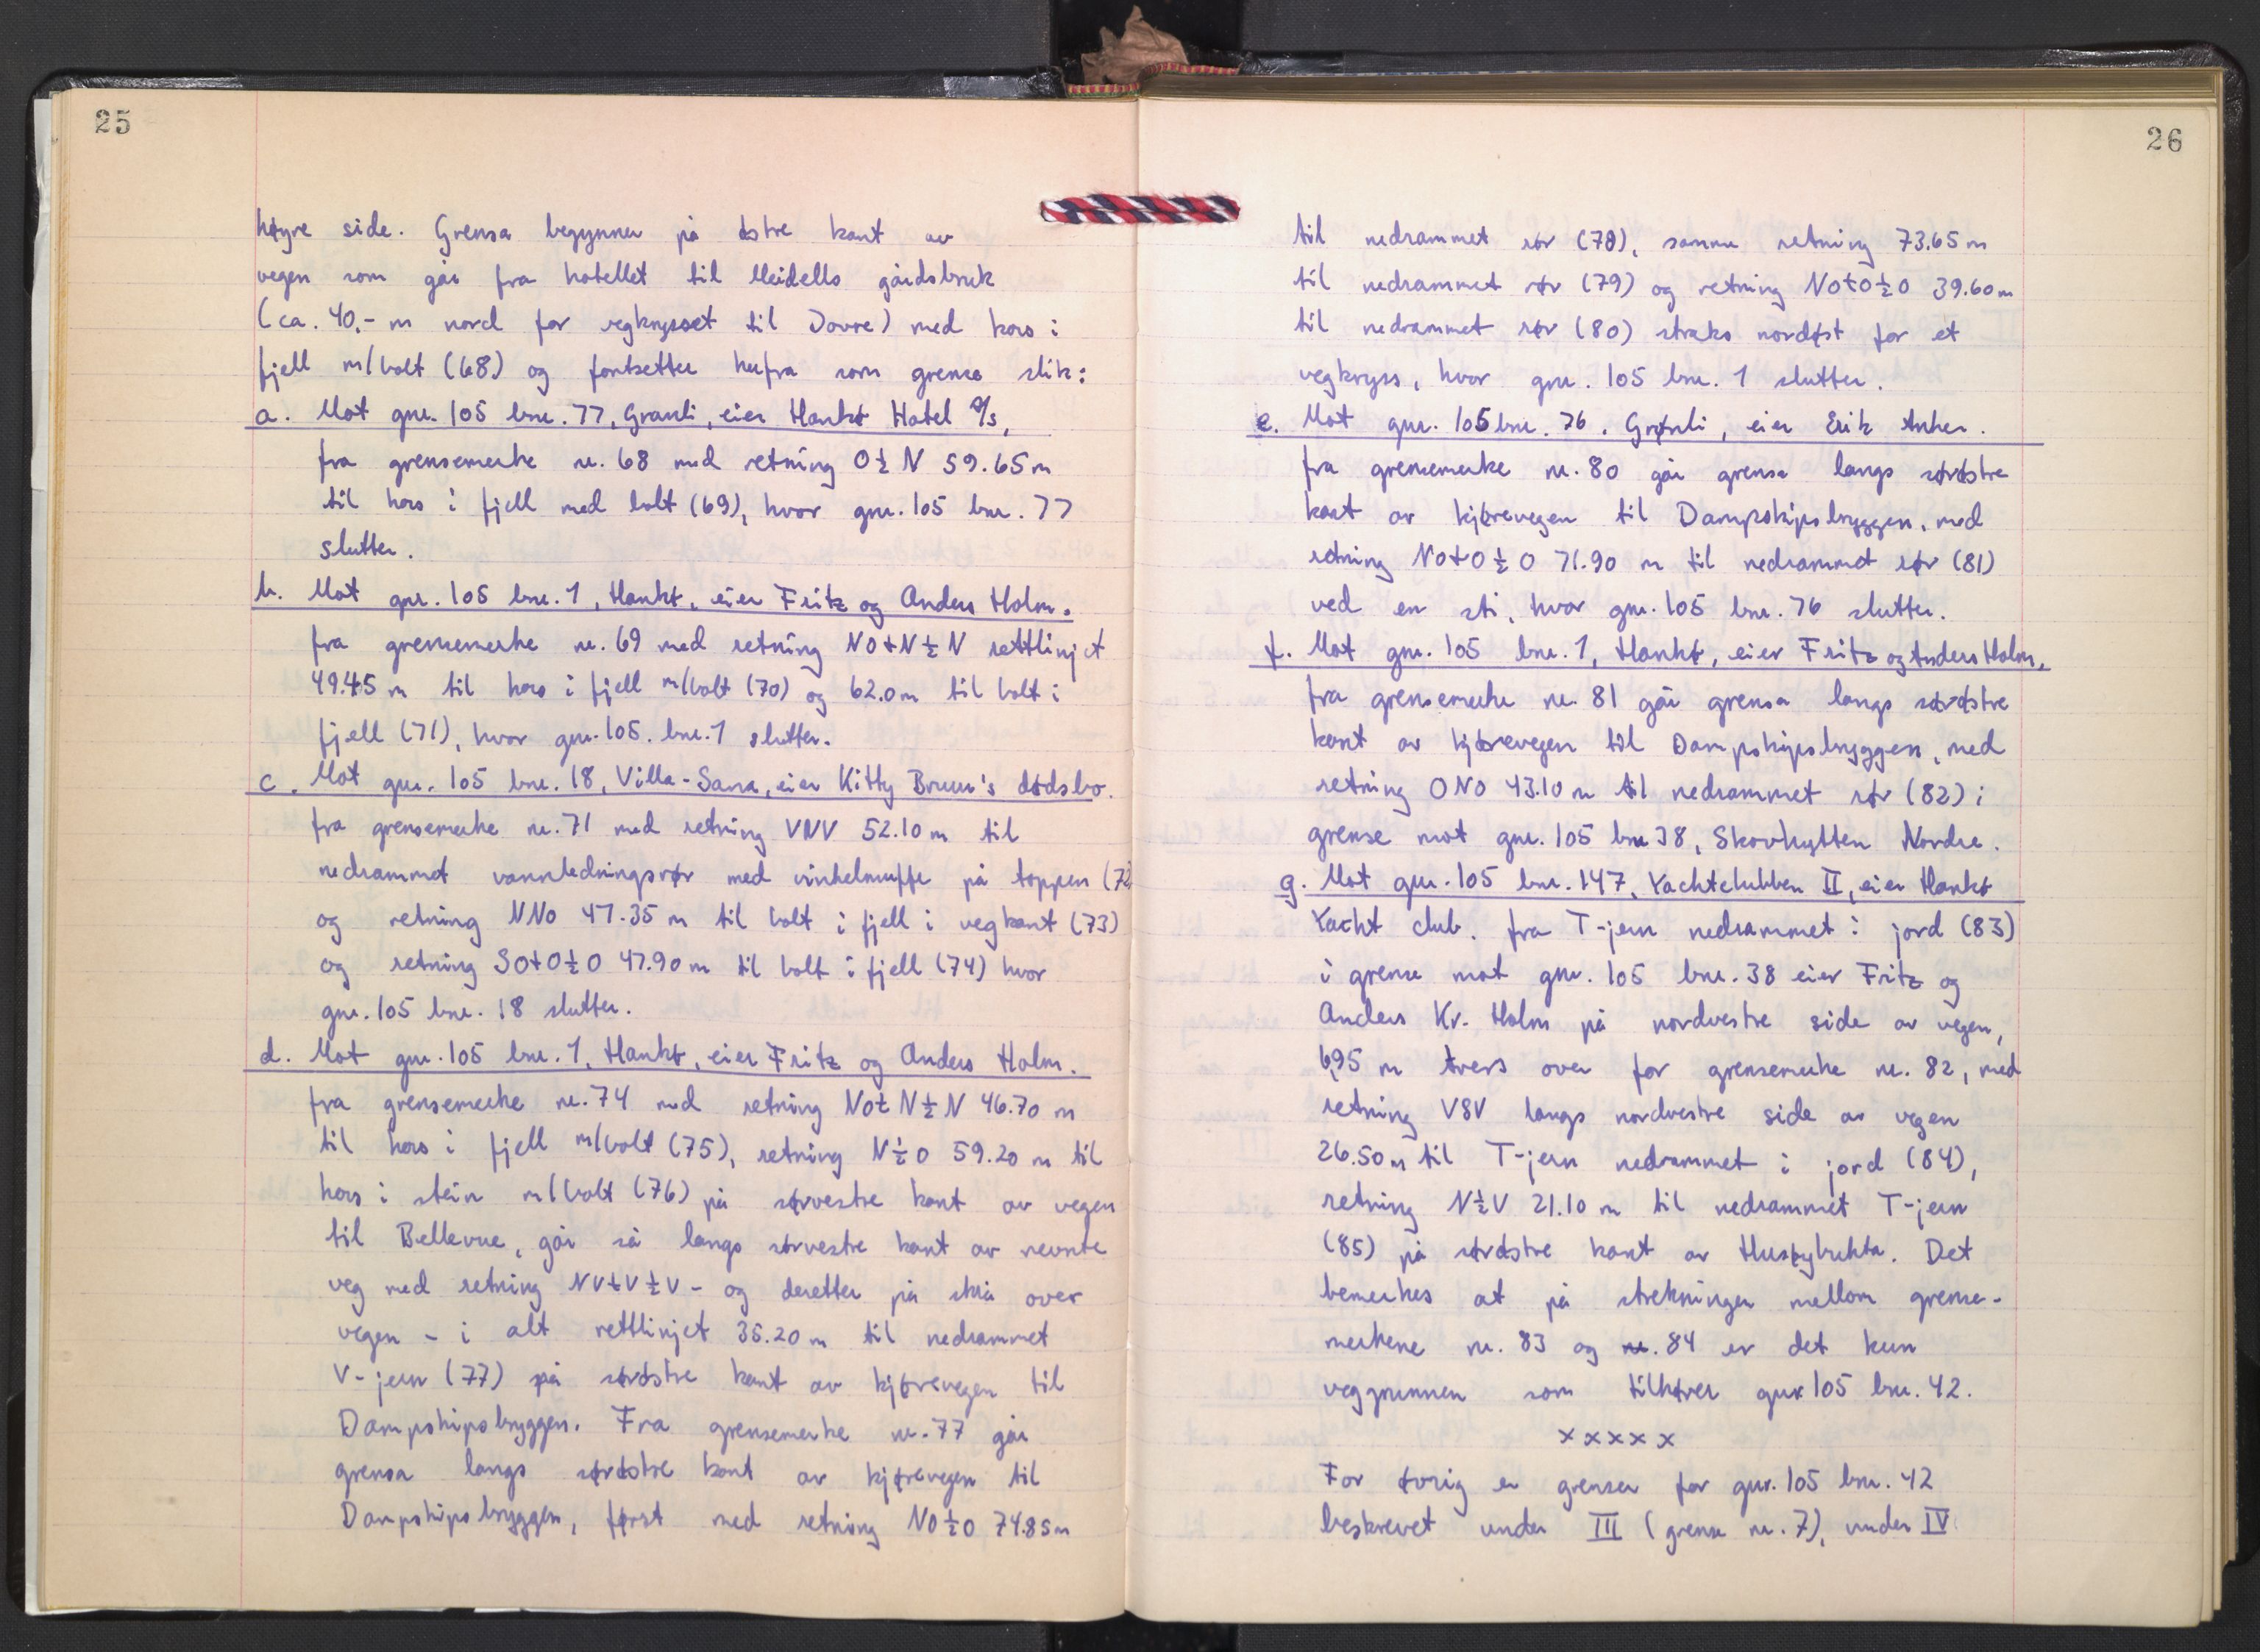 25
høyre side. Grensa begynner på østre kant av
vegen som går fra hotellet til Meidells gårdsbruk
(ca. 40,- m nord for vegkrysset til Dovre) med kors i
fjell m/bolt (68) og fortsetter herfra som grense slik:
a. Mot gnr. 105 bnr. 77, Granli, eier Hankø Hotel A/S,
fra grensemerke nr. 68 med retning O½N 59.65 m
til kors i fjell med bolt (69), hvor gnr. 105 bnr. 77
slutter.
b. Mot gnr. 105 bnr. 1, Hankø, eier Fritz og Anders Holm.
fra grensemerke nr. 69 med retning NOtN½N rettlinjet
49.45 m til kors i fjell m/bolt (70) og 62.0 m til bolt i
fjell (71), hvor gnr. 105. bnr. 1 slutter.
c. Mot gnr. 105 bnr. 18, Villa-Sana, eier Kitty Bruun's dødsbo.
fra grensemerke nr. 71 med retning VNV 52.10 m til
nedrammet vannledningsrør med vinkelmuffe på toppen (72
og retning NNO 47.35 m til bolt i fjell i vegkant (73)
og retning SOtO½O 47.90 m til bolt i fjell (74) hvor
gnr. 105 bnr. 18 slutter.
d. Mot gnr. 105 bnr. 1, Hankø, eier Fritz og Anders Holm.
fra grensemerke nr. 74 med retning NOtN½N 46.70 m
til kors i fjell m/bolt (75), retning N½O 59.20 m til
kors i stein m/bolt (76) på sørvestre kant av vegen
til Bellevue, går så langs sørvestre kant av nevnte
veg med retning NVtV½V - og deretter på skrå over
vegen - i alt rettlinjet 35.20 m til nedrammet
V-jern (77) på sørøstre kant av kjørevegen til
Dampskipsbryggen. Fra grensemerke nr. 77 går
grensa langs sørøstre kant av kjørevegen til
Dampskipsbryggen, først med retning NO½O 74.85 m
26
til nedrammet rør (78), samme retning 73.65 m
til nedrammet rør (79) og retning NOtO½O 39.60 m
til nedrammet rør (80) straks nordøst for et
vegkryss, hvor gnr. 105 bnr. 1 slutter.
e. Mot gnr. 105 bnr. 76. Grønli, eier Erik Anker.
fra grensemerke nr. 80 går grensa langs sørøstre
kant av kjørevegen til Dampskipsbryggen, med
retning NOtO½O 71.90 m til nedrammet rør (81)
ved en sti, hvor gnr. 105 bnr. 76 slutter.
f. Mot gnr. 105 bnr. 1, Hankø, eier Fritz og Anders Holm,
fra grensemerke nr. 81 går grensa langs sørøstre
kant av kjørevegen til Dampskipsbryggen, med
retning ONO 43.10 m til nedrammet rør (82) i
grense mot gnr. 105 bnr 38, Skovhytten Nordre.
g. Mot gnr. 105 bnr. 147, Yachtclubben II, eier Hankø
Yacht club. fra T-jern nedrammet i jord (83)
i grense mot gnr. 105 bnr. 38 eier Fritz og
Anders Kr. Holm på nordvestre side av vegen,
6,95 m tvers over for grensemerke nr. 82, med
retning VSV langs nordvestre side av vegen
26.50 m til T-jern nedrammet i jord (84),
retning N½V 21.10 m til nedrammet T-jern
(85) på sørøstre kant av Husøybukta. Det
bemerkes at på strekningen mellom grense-
merkene nr. 83 og nr. 84 er det kun
veggrunnen som tilhører gnr 105 bnr. 42.
x x x x x
For øvrig er grensen for gnr. 105 bnr. 42
beskrevet under III (grense nr. 7), under IV